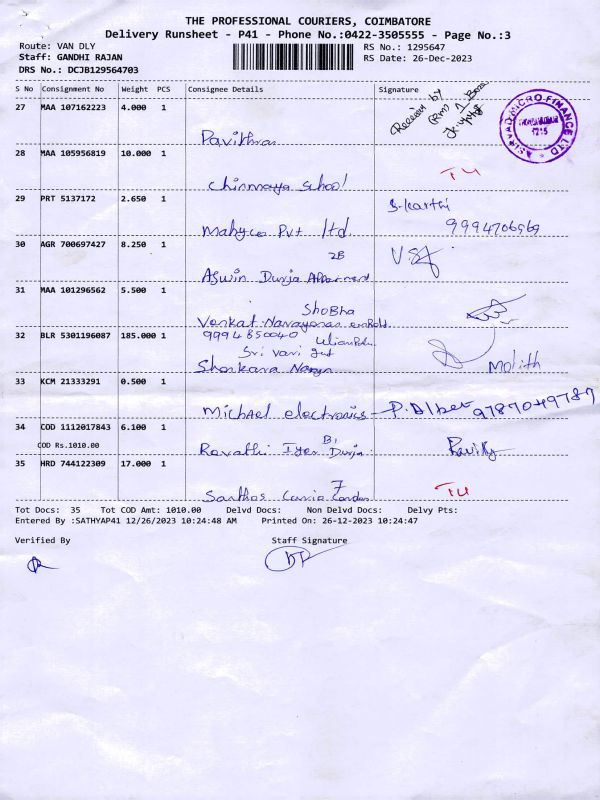 THE PROFESSIONAL COURIERS, COIMBATORE
Delivery Runsheet - P41 - Phone No.:0422-3505555 - Page No.:3
Route: VAN DLY
RS No.: 1295647
Staff: GANDHI RAJAN
RS Date: 26-Dec-2023
DRS No.: DCJB129564703
S No Consignment No Weight PCS Consignee Details Signature
27 MAA 107162223 4.000 1
Received by
Pavithran
28 MAA 105956819 10.000 1
Chinmaya School
29 PRT 5137172 2.650 1
S. Karthi
Mahyco Pvt ltd.
9994706969
30 AGR 700697427 8.250 1
2B
Aswin Durja
31 MAA 101296562 5.500 1
ShoBha
Venkat Narayanan
32 BLR 5301196087 185.000 1
9994850040
Sri Vari
Shankara
Mohith
33 KCM 21333291 0.500 1
Michael electronics - P. Albert 9787049787
34 COD 1112017843 6.100 1
COD Rs.1010.00
B1
Revathi Iyer Durja
35 HRD 744122309 17.000 1
7
Santhos
Tot Docs: 35 Tot COD Amt: 1010.00 Delvd Docs: Non Delvd Docs: Delvy Pts:
Entered By :SATHYAP41 12/26/2023 10:24:48 AM Printed On: 26-12-2023 10:24:47
Verified By Staff Signature